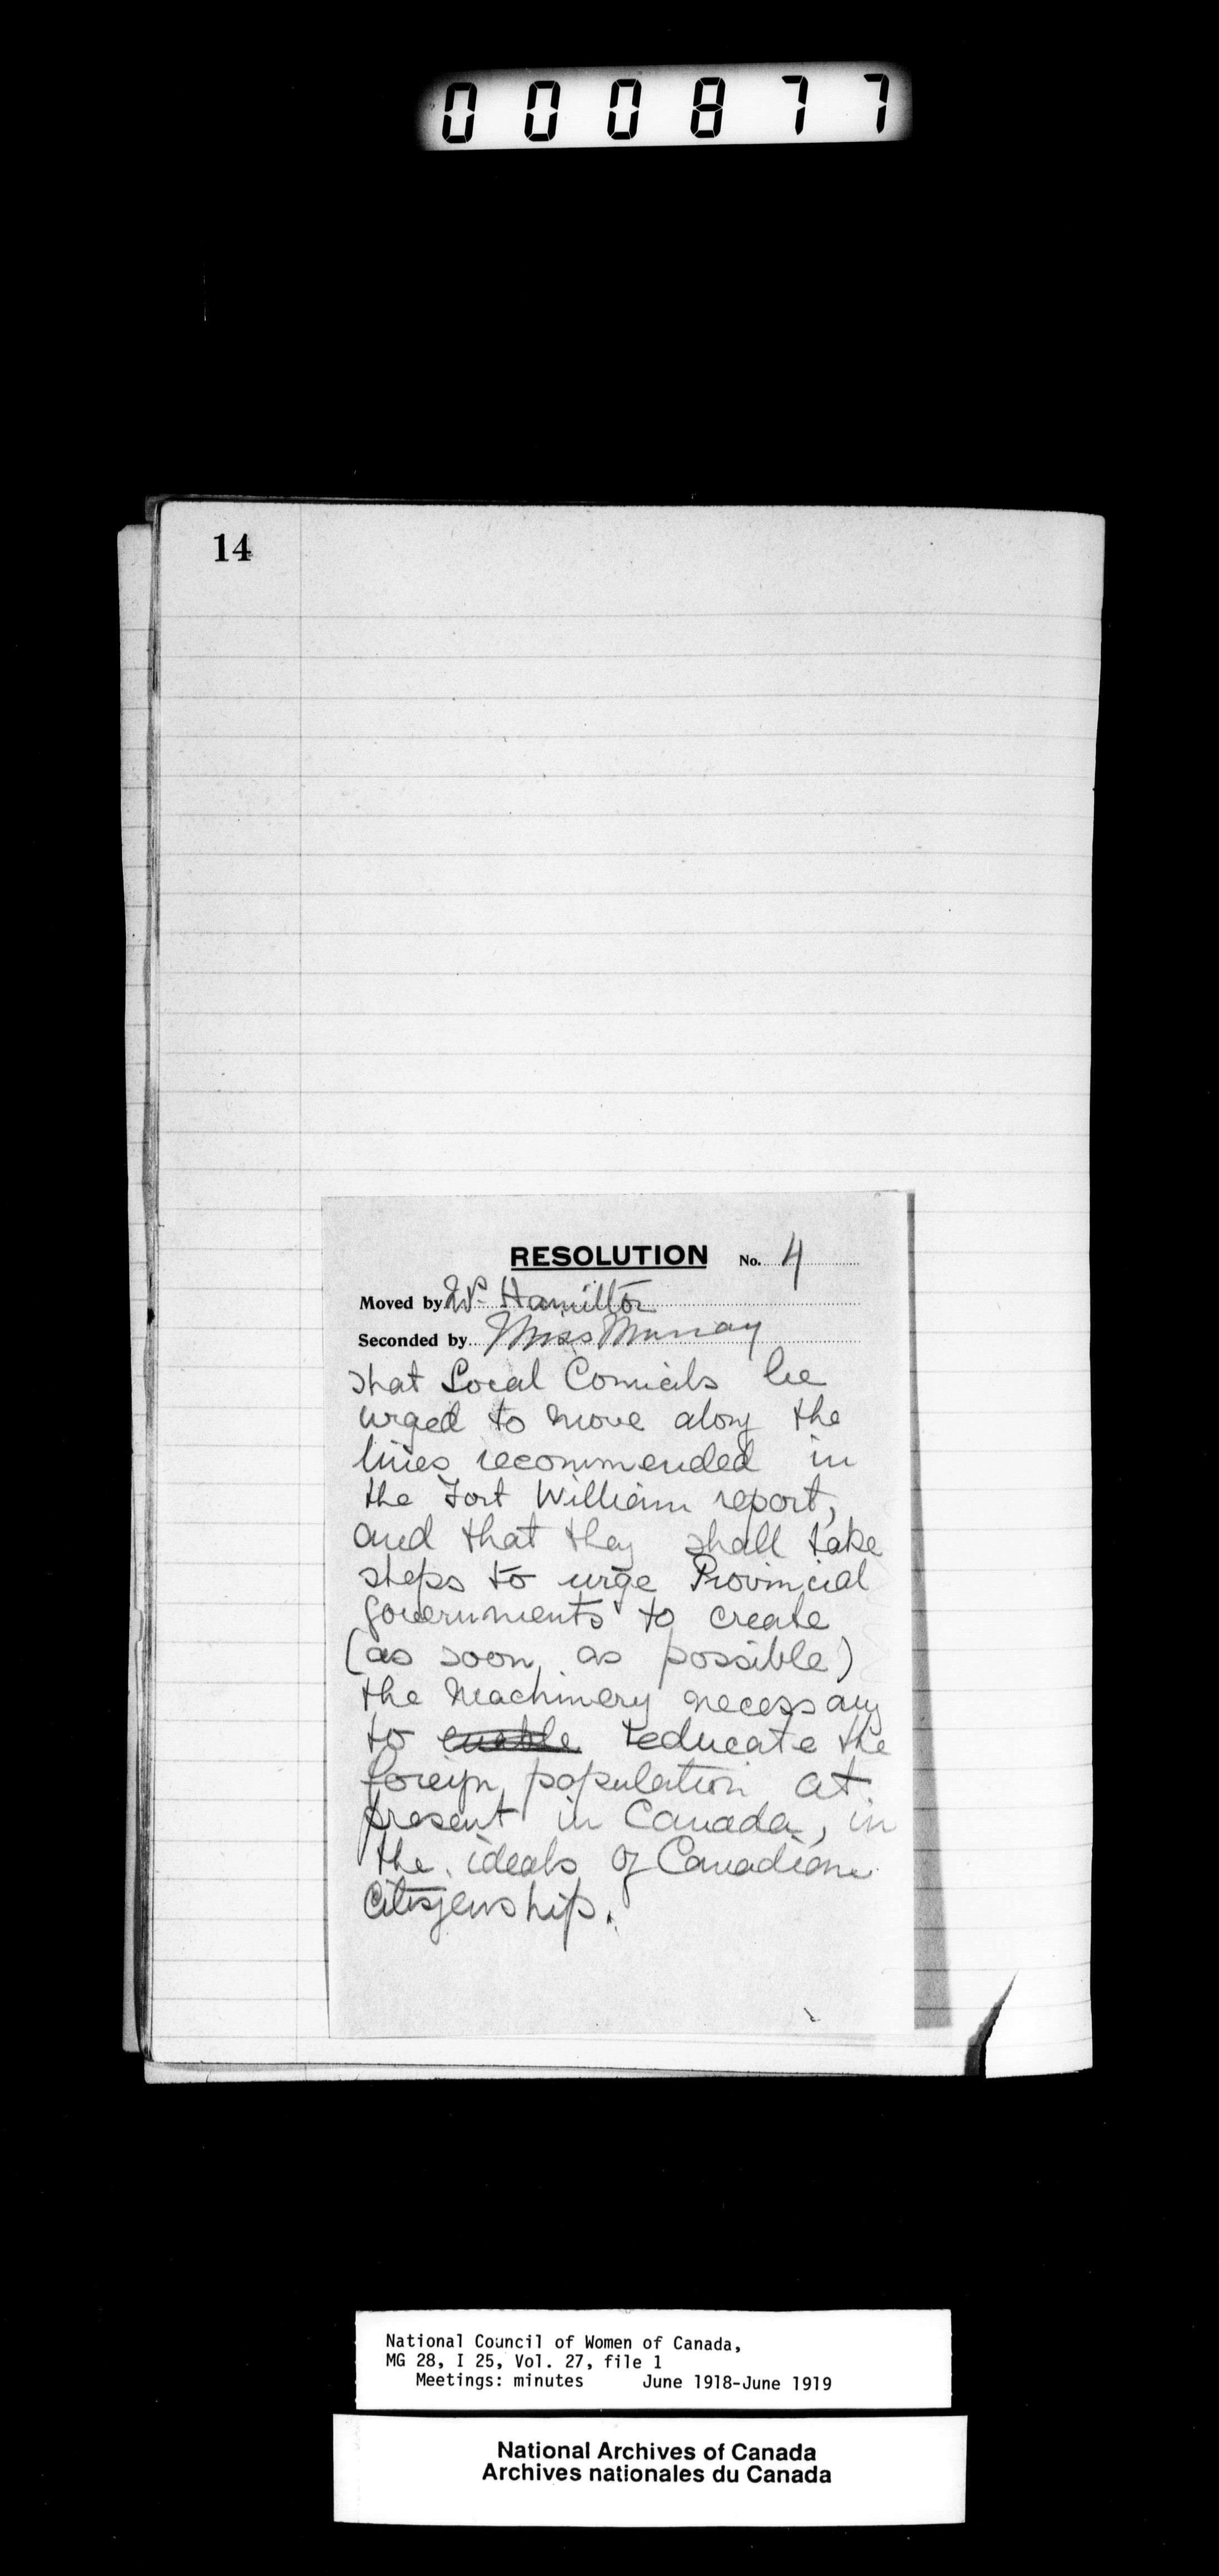 000877
14
RESOLUTION No. 4
Moved by Hamilton
Seconded by Miss Murray
That Local Councils be
urged to move along the
lines recommended in
the Fort William report,
and that they shall take
steps to urge Provincial
governments to create
(as soon as possible)
the Machinery necessary
to enable educate the
foreign population at
present in Canada, in
the ideals of Canadian
Citizenship.
National Council of Women of Canada,
MG 28, I 25, Vol. 27, file 1
Meetings: minutes June 1918-June 1919
National Archives of Canada
Archives nationales du Canada